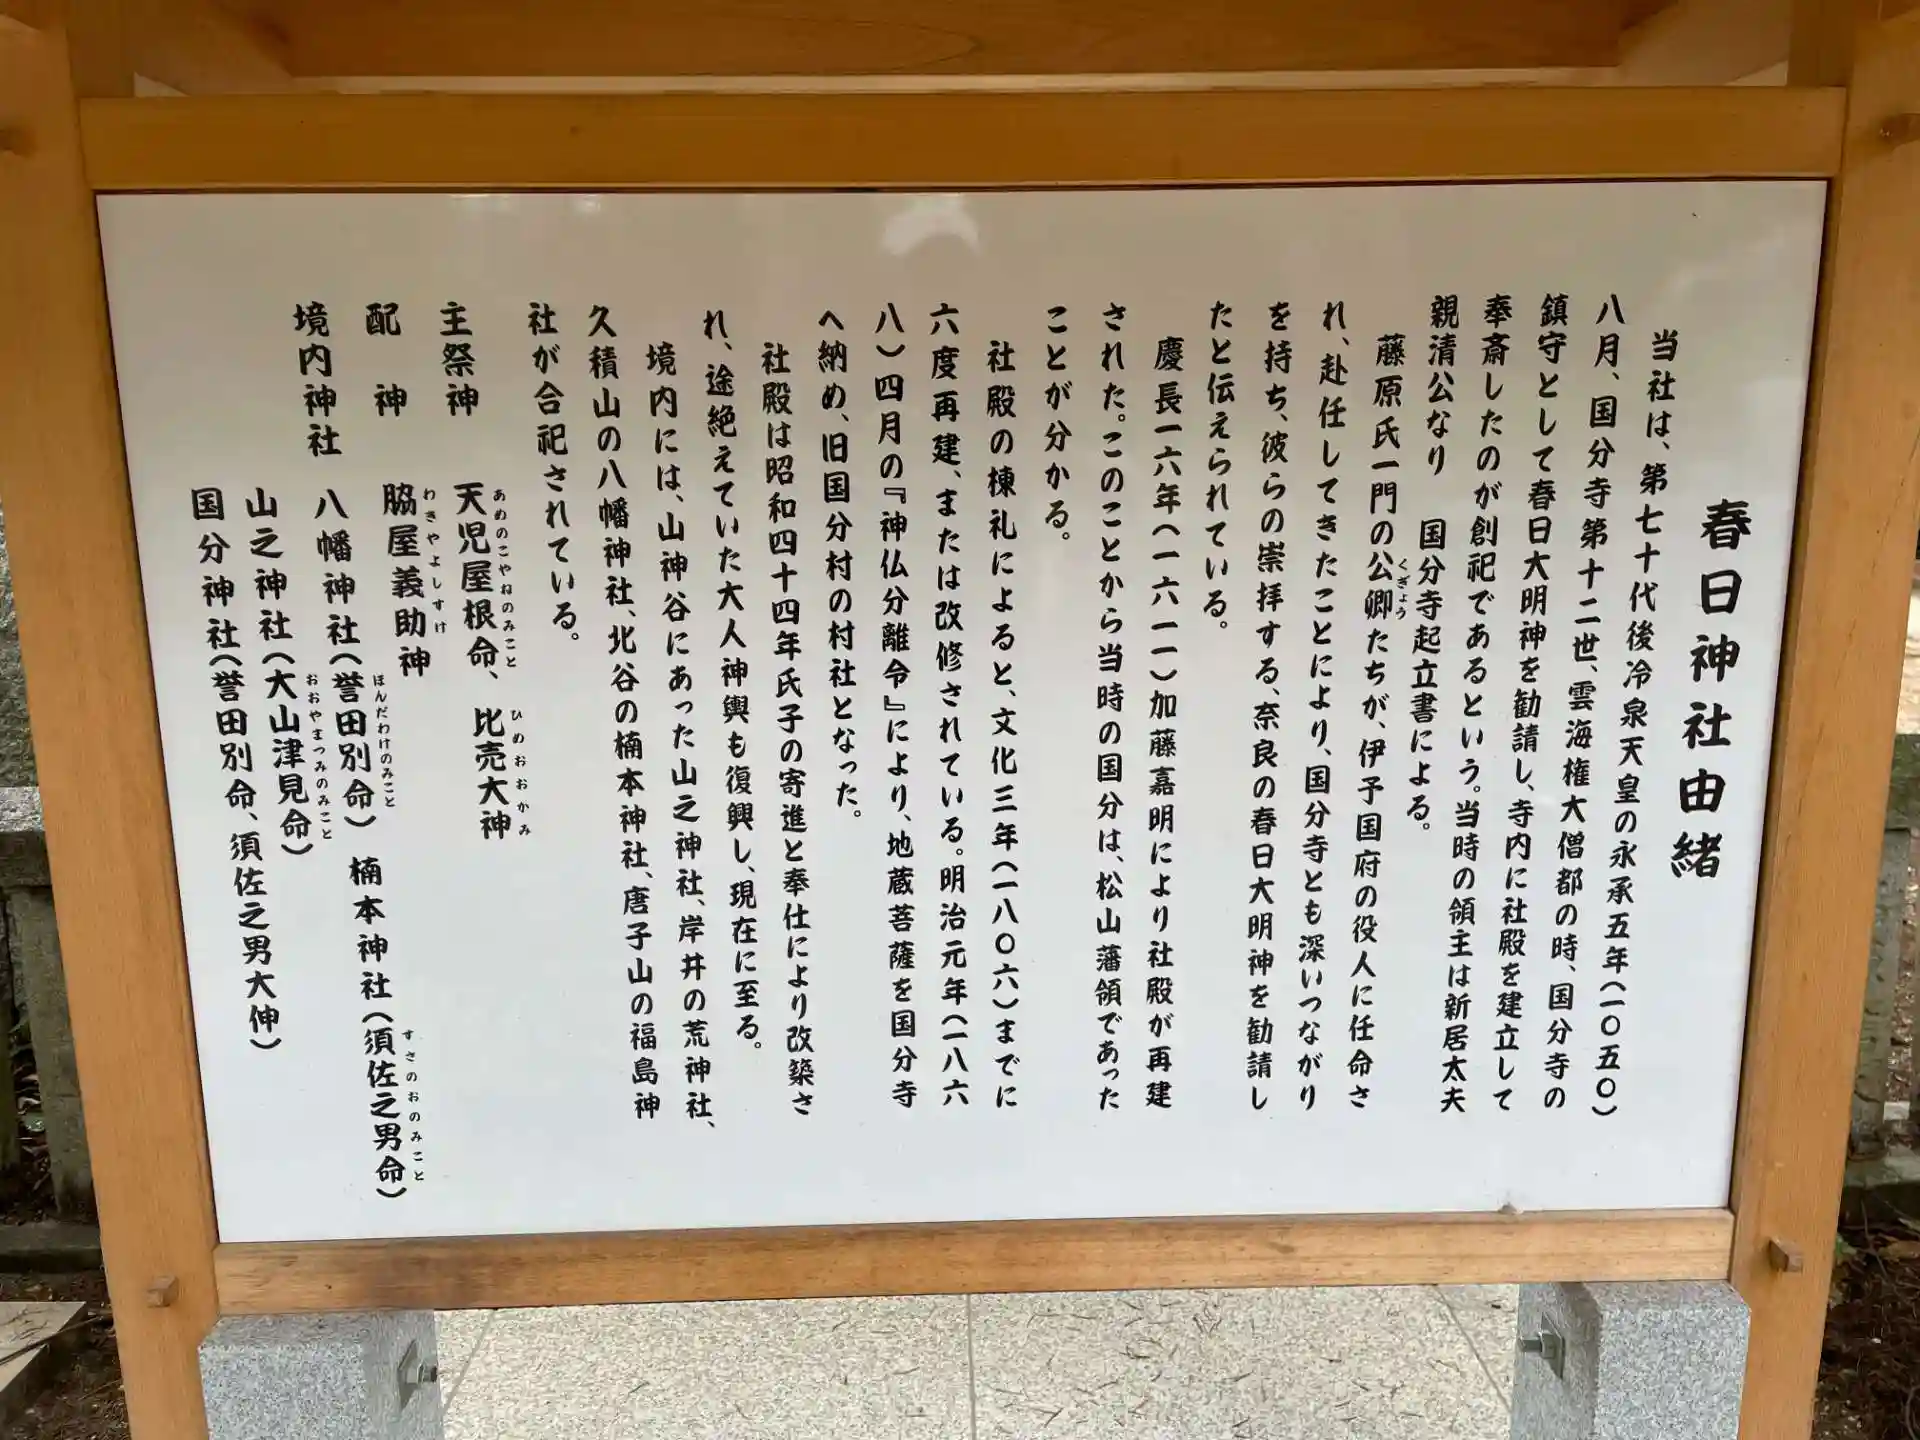 春日神社由緒
当社は、第七十代後冷泉天皇の永承五年(一〇五〇)
八月、国分寺第十二世、雲海権大僧都の時、国分寺の
鎮守として春日大明神を勧請し、寺内に社殿を建立して
奉斎したのが創祀であるという。当時の領主は新居太夫
親清公なり 国分寺起立書による。
藤原氏一門の公卿たちが、伊予国府の役人に任命さ
くぎょう
れ、赴任してきたことにより、国分寺とも深いつながり
を持ち、彼らの崇拝する、奈良の春日大明神を勧請し
たと伝えられている。
慶長一六年(一六一一)加藤嘉明により社殿が再建
された。このことから当時の国分は、松山藩領であった
ことが分かる。
社殿の棟礼によると、文化三年(一八〇六)までに
六度再建、または改修されている。明治元年(一八六
八)四月の『神仏分離令』により、地蔵菩薩を国分寺
へ納め、旧国分村の村社となった。
社殿は昭和四十四年氏子の寄進と奉仕により改築さ
れ、途絶えていた大人神輿も復興し、現在に至る。
境内には、山神谷にあった山之神社、岸井の荒神社、
久積山の八幡神社、北谷の楠本神社、唐子山の福島神
社が合祀されている。
主祭神 天児屋根命、比売大神
あめのこやねのみこと ひめおおかみ
配 神 脇屋義助神
わきやよしすけ
境内神社 八幡神社(誉田別命) 楠本神社(須佐之男命)
ほんだわけのみこと すさのおのみこと
山之神社(大山津見命)
おおやまつみのみこと
国分神社(誉田別命、須佐之男大伸)